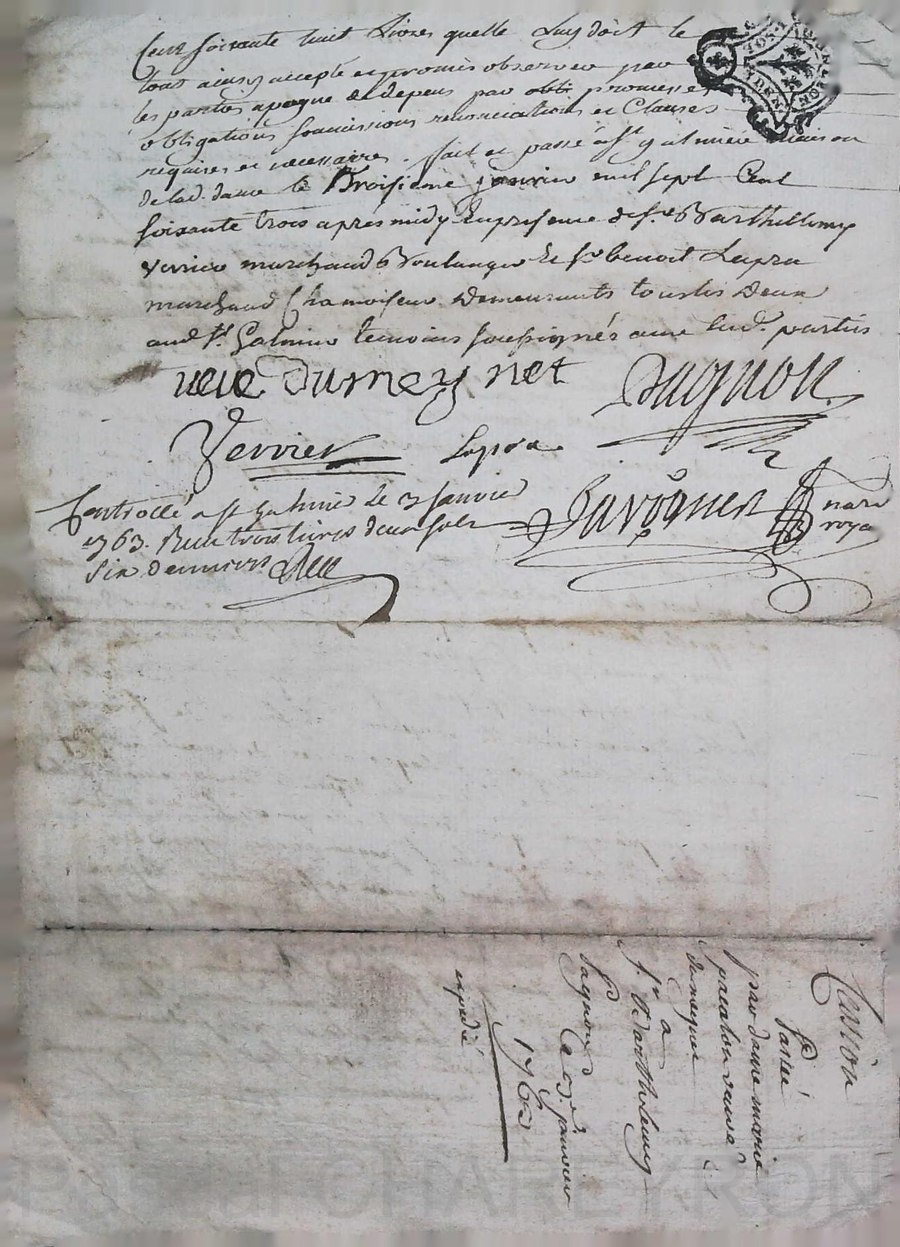 Cent soixante huit Livres quelle Luy doit le
tout ainsy accepté et promis observer par
les parties a peyne de depens par obbt promesses
obligations soumissions renonciations et Clauses
requises et necessaires. fait et passé a St Galmier maison
de lad. dame le Troisieme janvier mil sept Cent
soixante trois apres midy en presence de Sr Barthellemy
Verrier marchand Boulanger et Sr benoit Lapra
marchand Chamoiseur demeurants tous les deux
aud. St Galmier temoins soussignés avec lesd. parties
veuve Dumeynet Pagnon
Verrier Lapra
Javogues nore royal
Controllé a St Galmier le 3 Janvier
1763. Reçu trois livres deux sols
six deniers
Cession
Passée
par dame marie
veuve
dumeynet
a
Sr Barthelemy
Pagnon
Le 3e janvier
1763
expedié
CHAREYRON